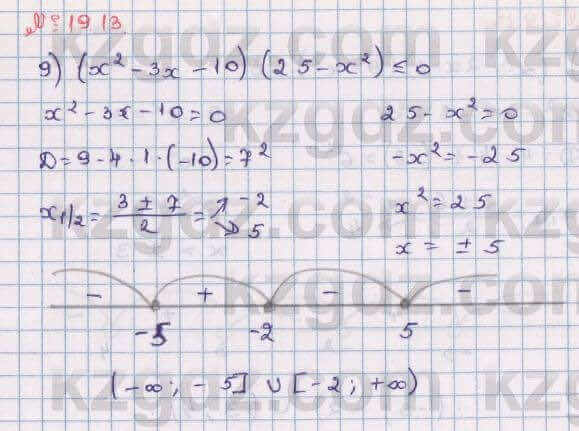 № 19 13.
9) (x² - 3x - 10) (25 - x²) ≤ 0
x² - 3x - 10 = 0
25 - x² = 0
D = 9 - 4 · 1 · (-10) = 7²
-x² = -25
x₁/₂ = (3 ± 7)/2 = -2
5
x² = 25
x = ± 5
- + - -
-5 -2 5
(-∞; -5] ∪ [-2; +∞)
kzgdz.com
kzgdz.com
kzgdz.com
kzgdz.com